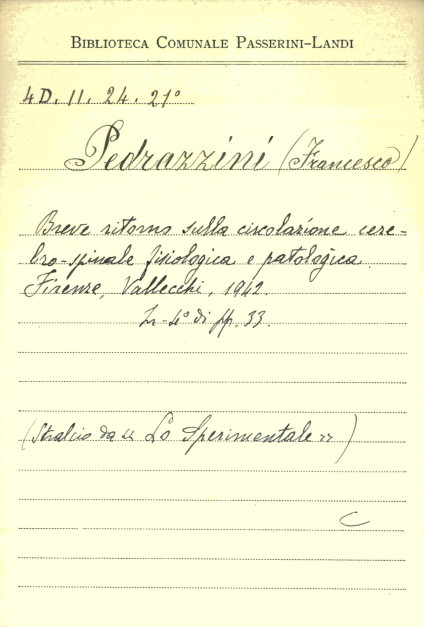 BIBLIOTECA COMUNALE PASSERINI-LANDI
4D. 11. 24. 21°
Pedrazzini (Francesco)
Breve ritorno sulla circolazione cere-
bro-spinale fisiologica e patologica.
Firenze, Vallecchi, 1942.
In-4° di pp. 33.
(Stralcio da "Lo Sperimentale")
C